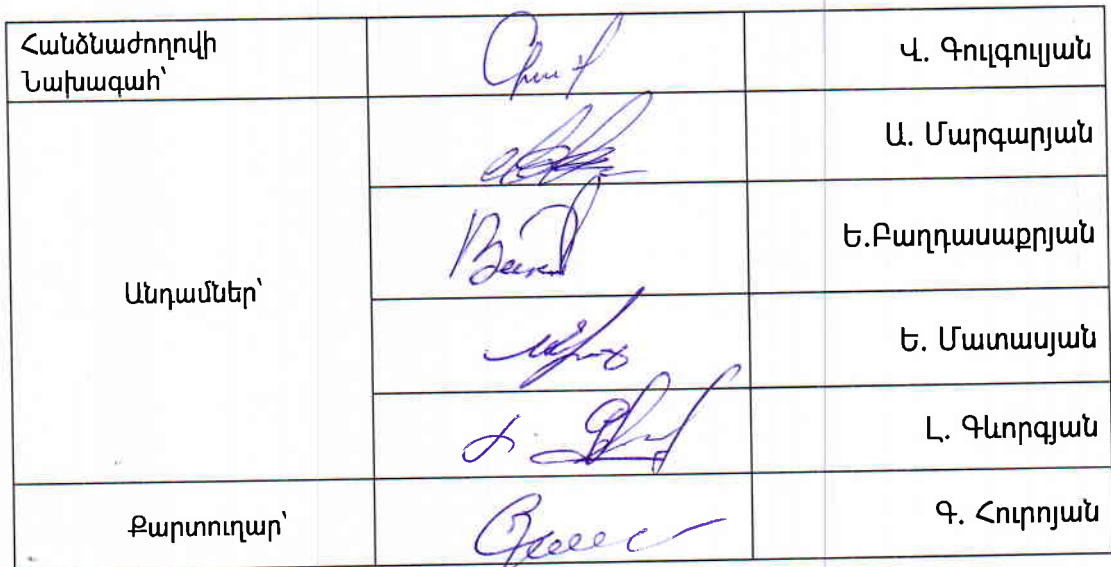 Հանձնաժողովի
Նախագահ՝
Վ. Գուլգուլյան
Ա. Մարգարյան
Ե.Բաղդասաքրյան
Անդամներ՝
Ե. Մատասյան
Լ. Գևորգյան
Քարտուղար՝
Գ. Հուրոյան